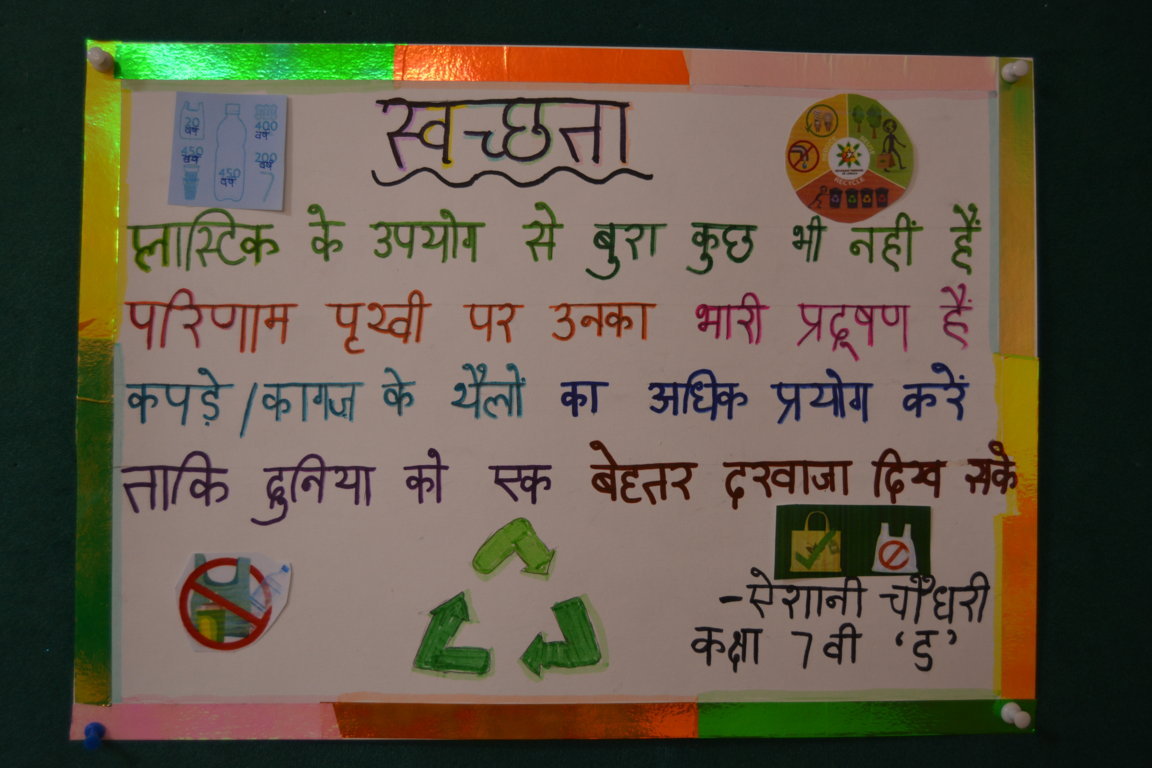 स्वच्छता
20 वर्ष
400 वर्ष
450 वर्ष
450 वर्ष
200 वर्ष
RECYCLE
प्लास्टिक के उपयोग से बुरा कुछ भी नहीं हैं
परिणाम पृथ्वी पर उनका भारी प्रदूषण हैं
कपड़े /कागज के थैलों का अधिक प्रयोग करें
ताकि दुनिया को एक बेहतर दरवाजा दिख सके
-ऐशानी चौधरी
कक्षा 7 वी 'ड'